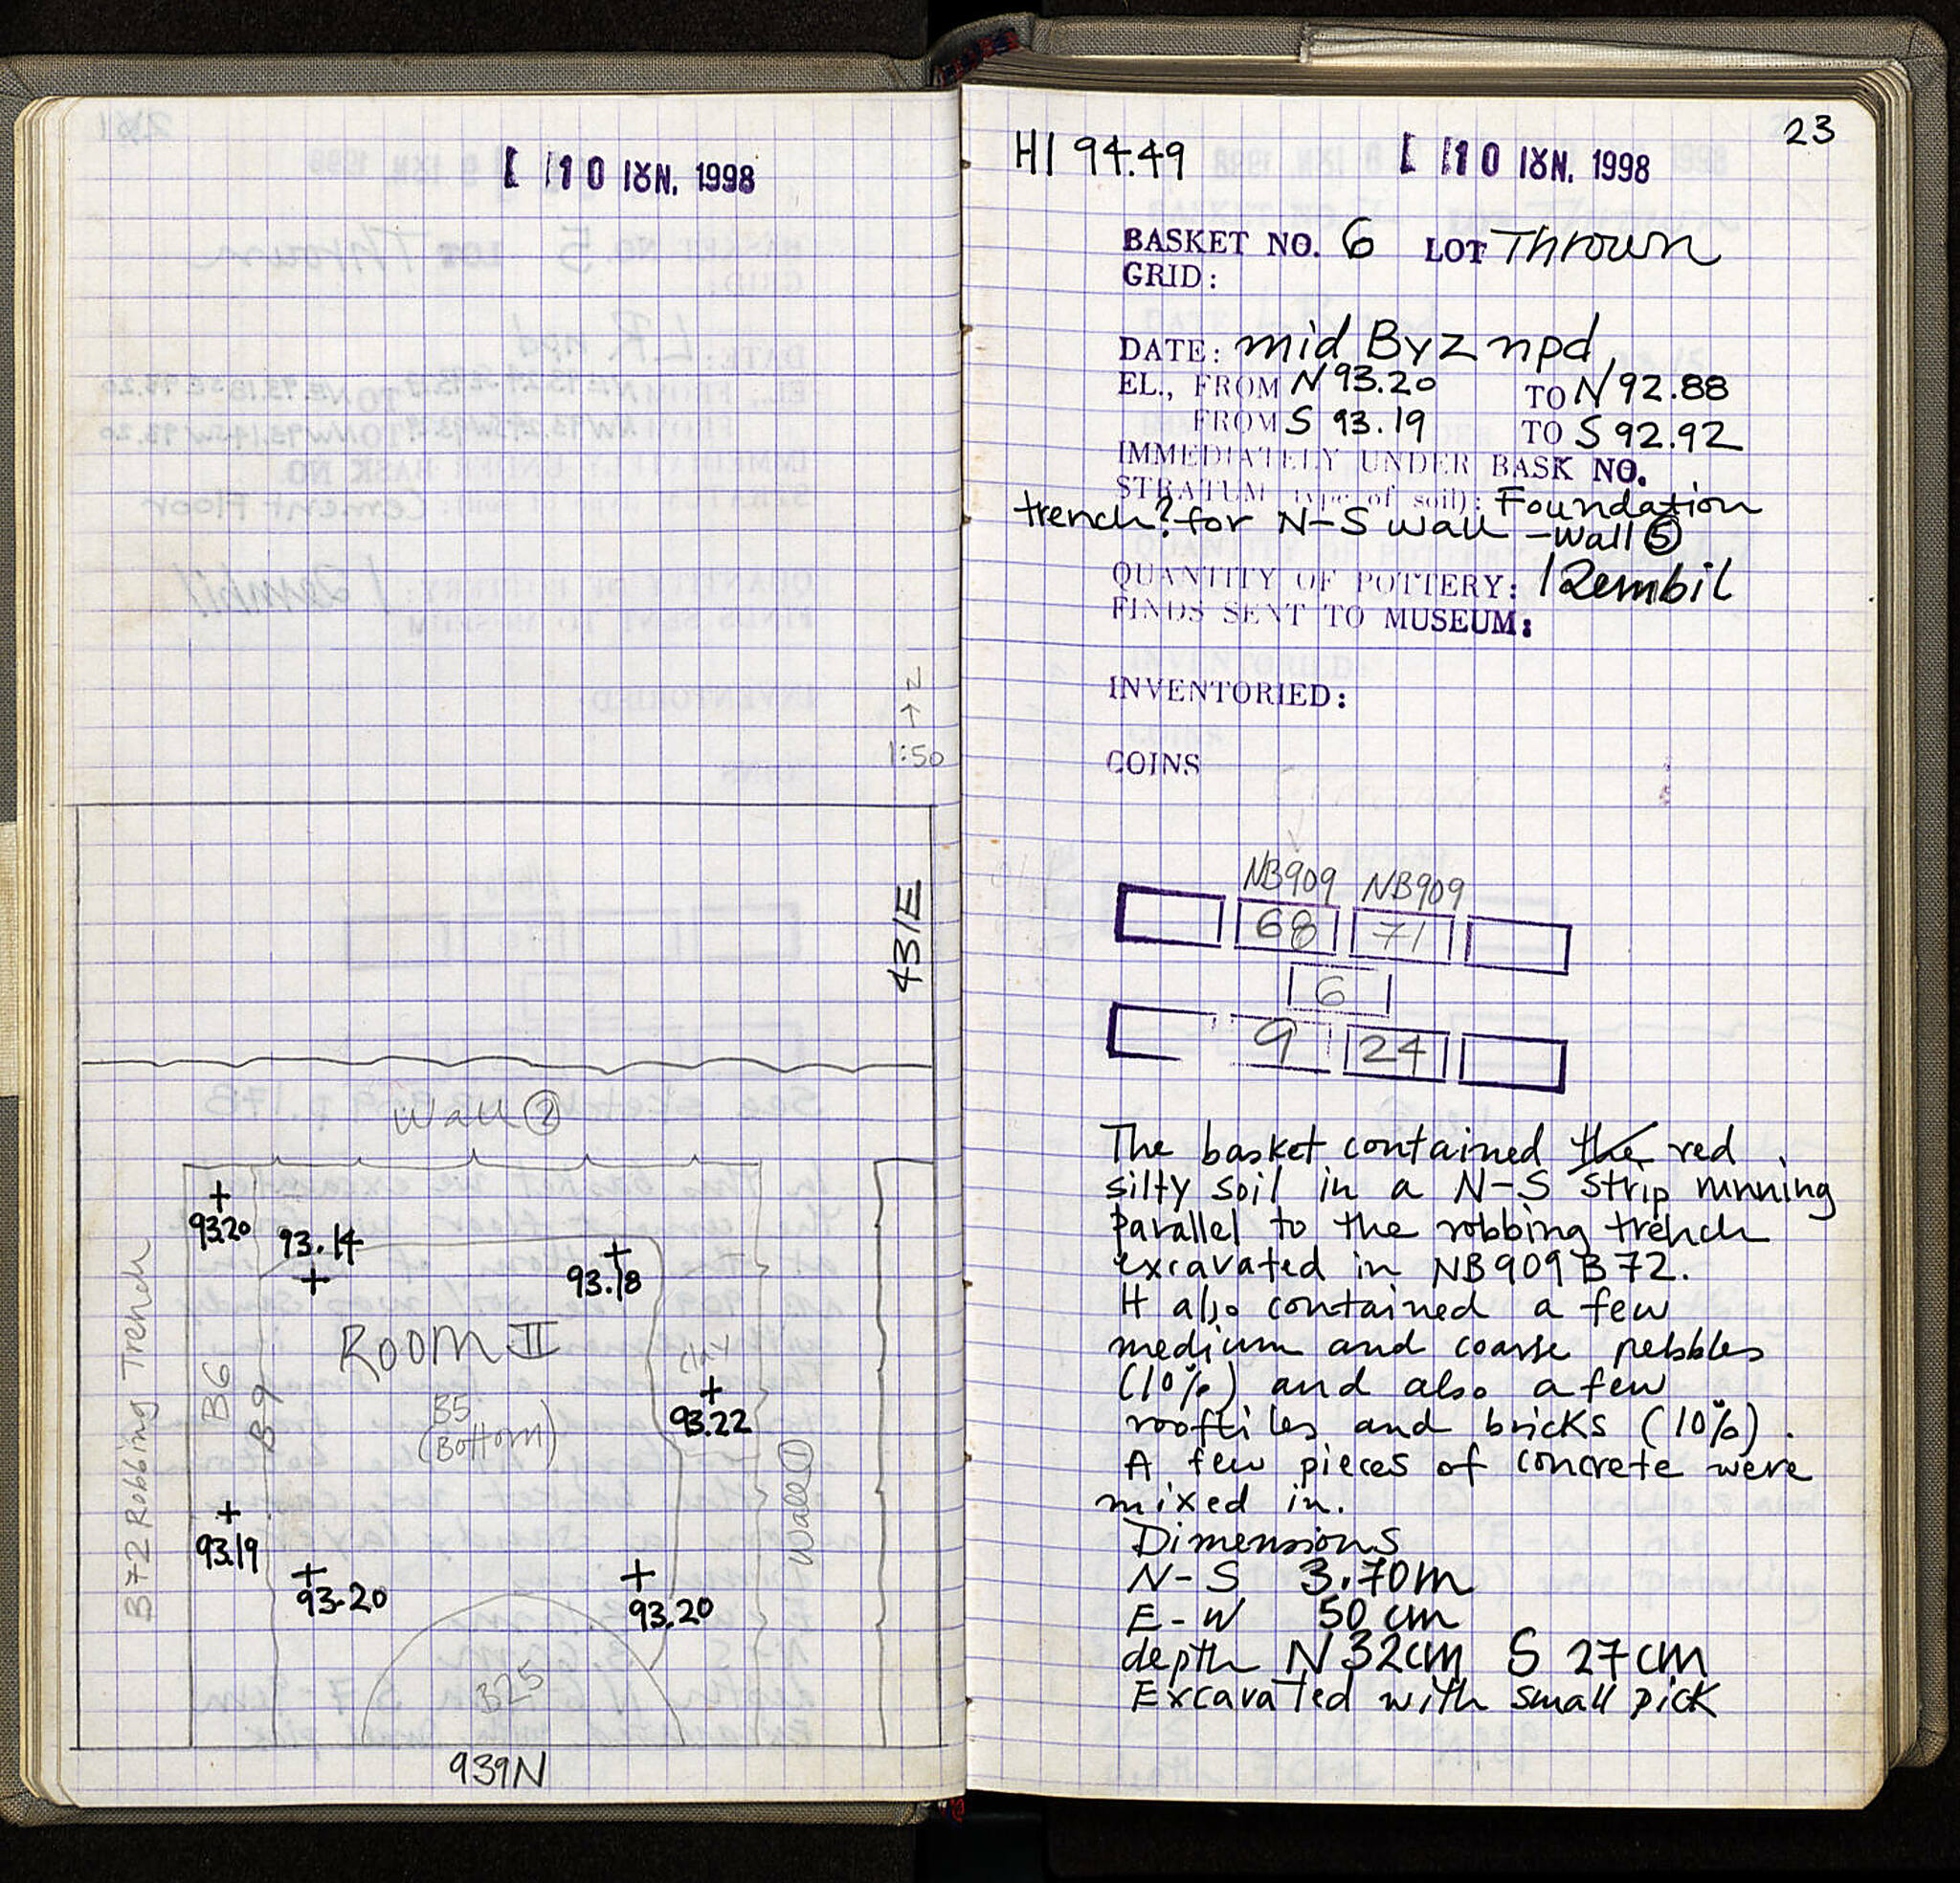 10 ΙȣΝ. 1998
N
1:50
431E
Wall ②
93.20
93.14
93.18
ROOM II
clay
B6
B9
B5
(Bottom)
93.22
B72 Robbing Trench
Wall ①
93.19
93.20
93.20
B25
939N
23
HI 94.49
10 ΙȣΝ. 1998
BASKET NO. 6 LOT Thrown
GRID:
DATE: mid Byz npd
EL., FROM N 93.20 TO N 92.88
FROM S 93.19 TO S 92.92
IMMEDIATELY UNDER BASK NO.
STRATUM (type of soil): Foundation
trench? for N-S wall - Wall ⑤
QUANTITY OF POTTERY: 1 Zembil
FINDS SENT TO MUSEUM:
INVENTORIED:
COINS
NB909 NB909
68 71
6
9 24
The basket contained the red
silty soil in a N-S strip running
parallel to the robbing trench
excavated in NB909 B72.
It also contained a few
medium and coarse pebbles
(10%) and also a few
rooftiles and bricks (10%).
A few pieces of concrete were
mixed in.
Dimensions
N-S 3.70m
E-W 50 cm
depth N 32cm S 27cm
Excavated with small pick